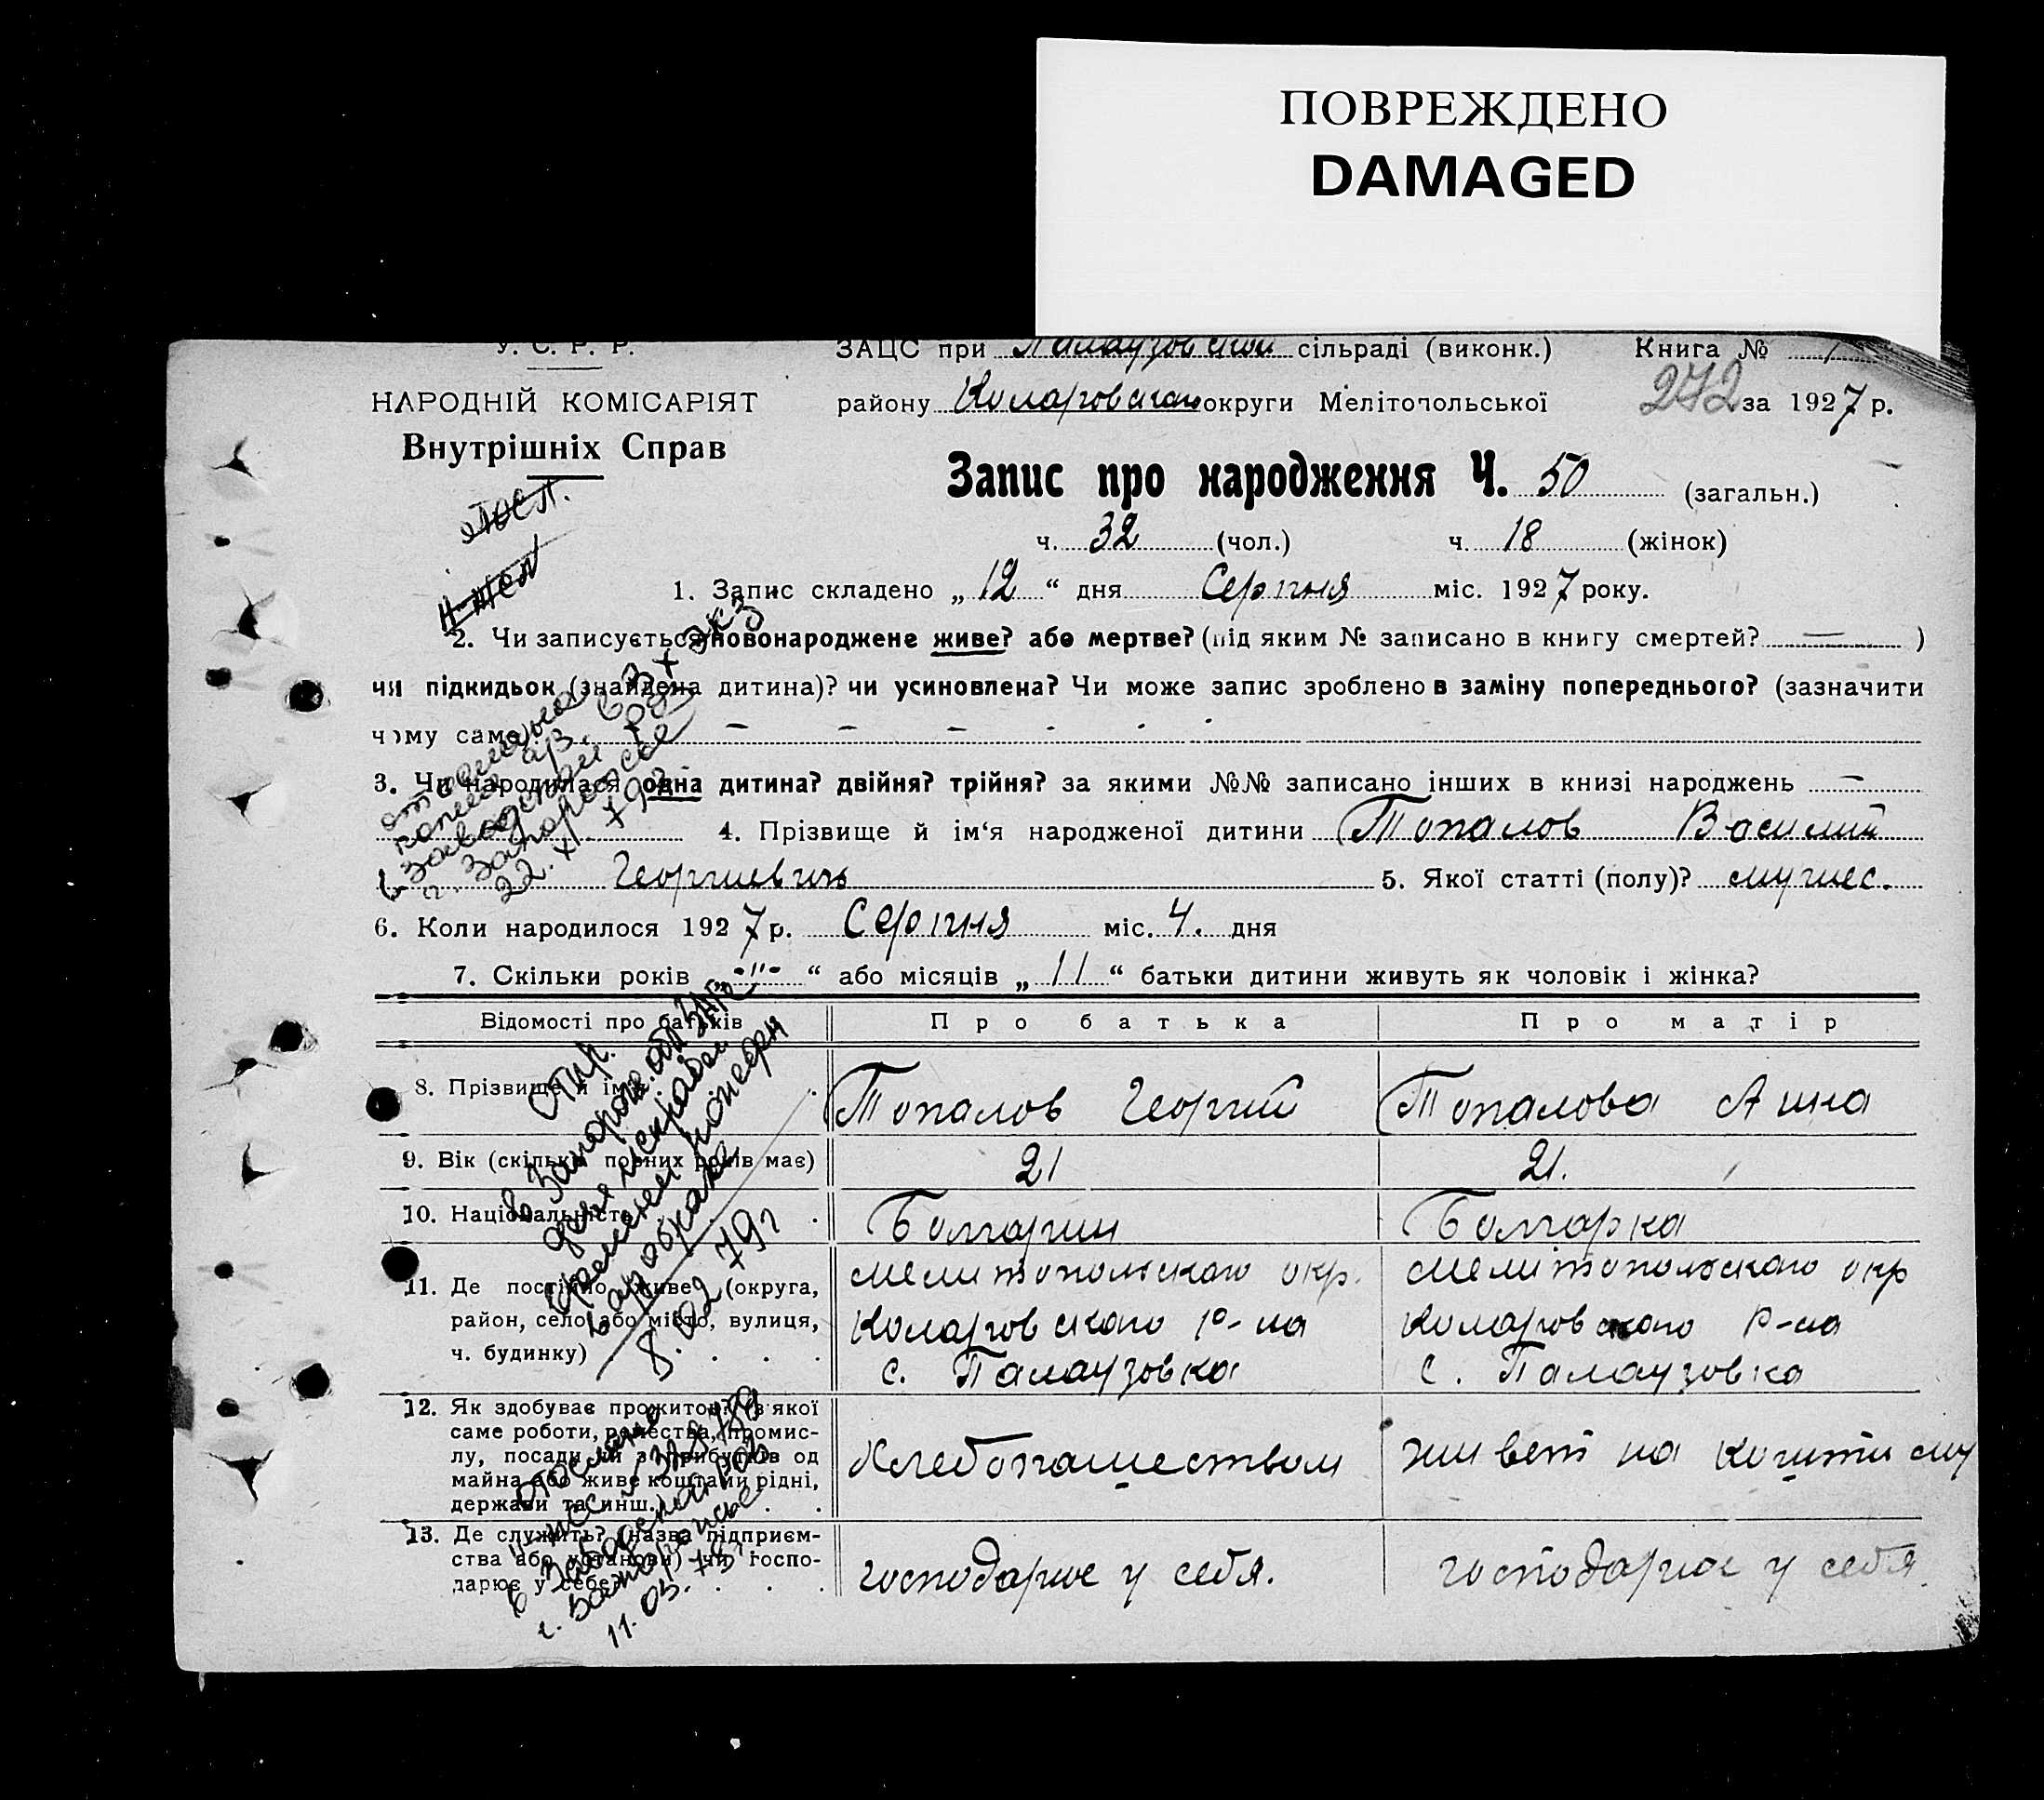 ПОВРЕЖДЕНО
DAMAGED
У. С. Р. Р.
ЗАЦС при Палаузовской сільраді (виконк.) Книга №
НАРОДНІЙ КОМІСАРІЯТ
району округи Мелітопольської 272 за 1927 р.
Внутрішніх Справ
Запис про народження Ч. 50 (загальн.)
ч. 32 (чол.) ч. 18 (жінок)
1. Запис складено „ 12 “ дня Серпня міс. 1927 року.
2. Чи записується новонароджене живе? або мертве? (під яким № записано в книгу смертей? — )
чи підкидьок (знайдена дитина)? чи усиновлена? Чи може запис зроблено в заміну попереднього? (зазначити
чому саме)
3. Чи народилася одна дитина? двійня? трійня? за якими №№ записано інших в книзі народжень —
4. Прізвище й ім‘я народженої дитини Топалов Василий
Георгиевич 5. Якої статті (полу)? мужес.
6. Коли народилося 1927 р. Серпня міс. 4. дня
7. Скільки років -"- “ або місяців „ 11 “ батьки дитини живуть як чоловік і жінка?
Відомості про батьків Про батька Про матір
8. Прізвище й ім‘я Топалов Георгий Топалова Анна
9. Вік (скільки повних років має) 21 21.
10. Національність Болгарин Болгарка
11. Де постійно живе (округа, район, село або місто, вулиця, ч. будинку)
Мелитопольскаго окр. Мелитопольскаго окр
р-на р-на
с. Палаузовка с. Палаузовка
12. Як здобуває прожиток? (з якої
саме роботи, ремества, промис-
лу, посади чи з прибутків од
майна або живе коштами рідні,
держави та инш.)
Хлебопашеством живет на кошти му
13. Де служить? (назва підприєм-
ства або установи) чи госпо-
дарює у себе?
господарює у себя. господарює у себя.
22. XI 79г
отпр.
в Запорож. обл ЗАГС
для исправлен
8. 02 79г
отослано
г. Запорожье
11. 03. 79г